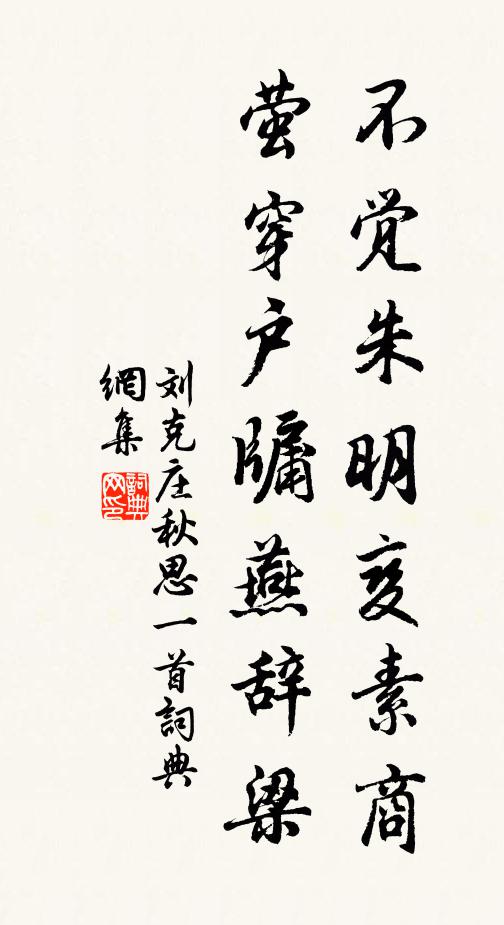 不觉朱明变素商
萤穿户牖燕辞梁
刘克庄秋思一首詞典
網集
詞典网印